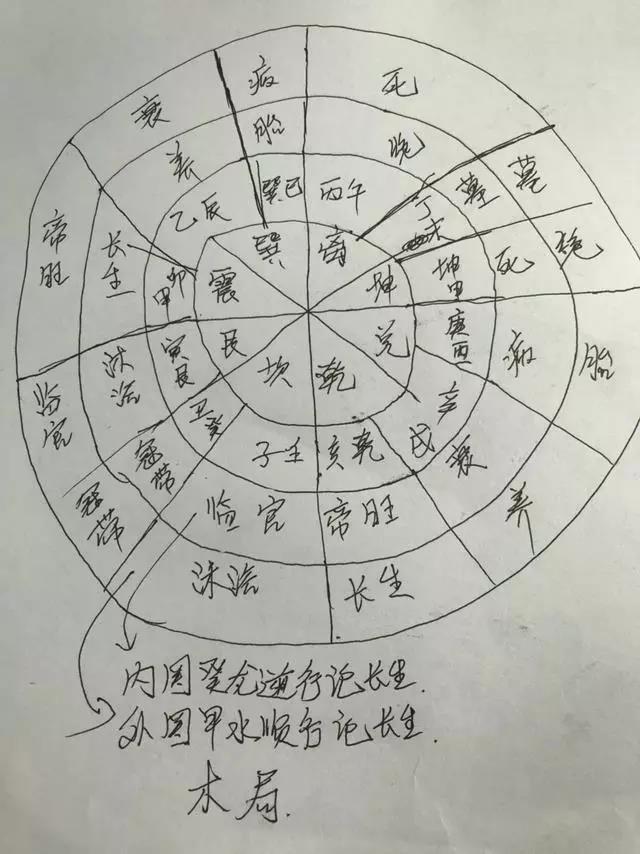 死
墓
绝
胎
养
长生
沐浴
冠带
临官
帝旺
衰
病
胎
绝
墓
死
病
衰
帝旺
临官
冠带
沐浴
长生
养
癸巳
丙午
丁未
坤申
庚酉
辛戌
亥乾
子壬
丑癸
寅艮
甲卯
乙辰
巽
离
坤
兑
乾
坎
艮
震
内圈癸仓逆行记长生.
外圈甲水顺行记长生.
木局.